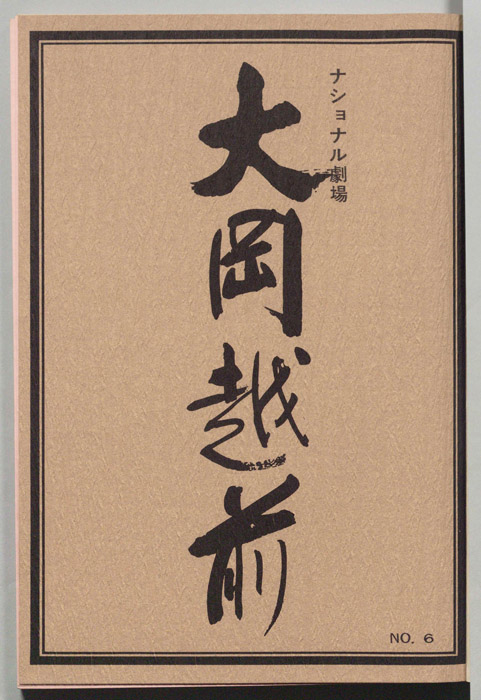 ナショナル劇場
大岡越前
NO. 6